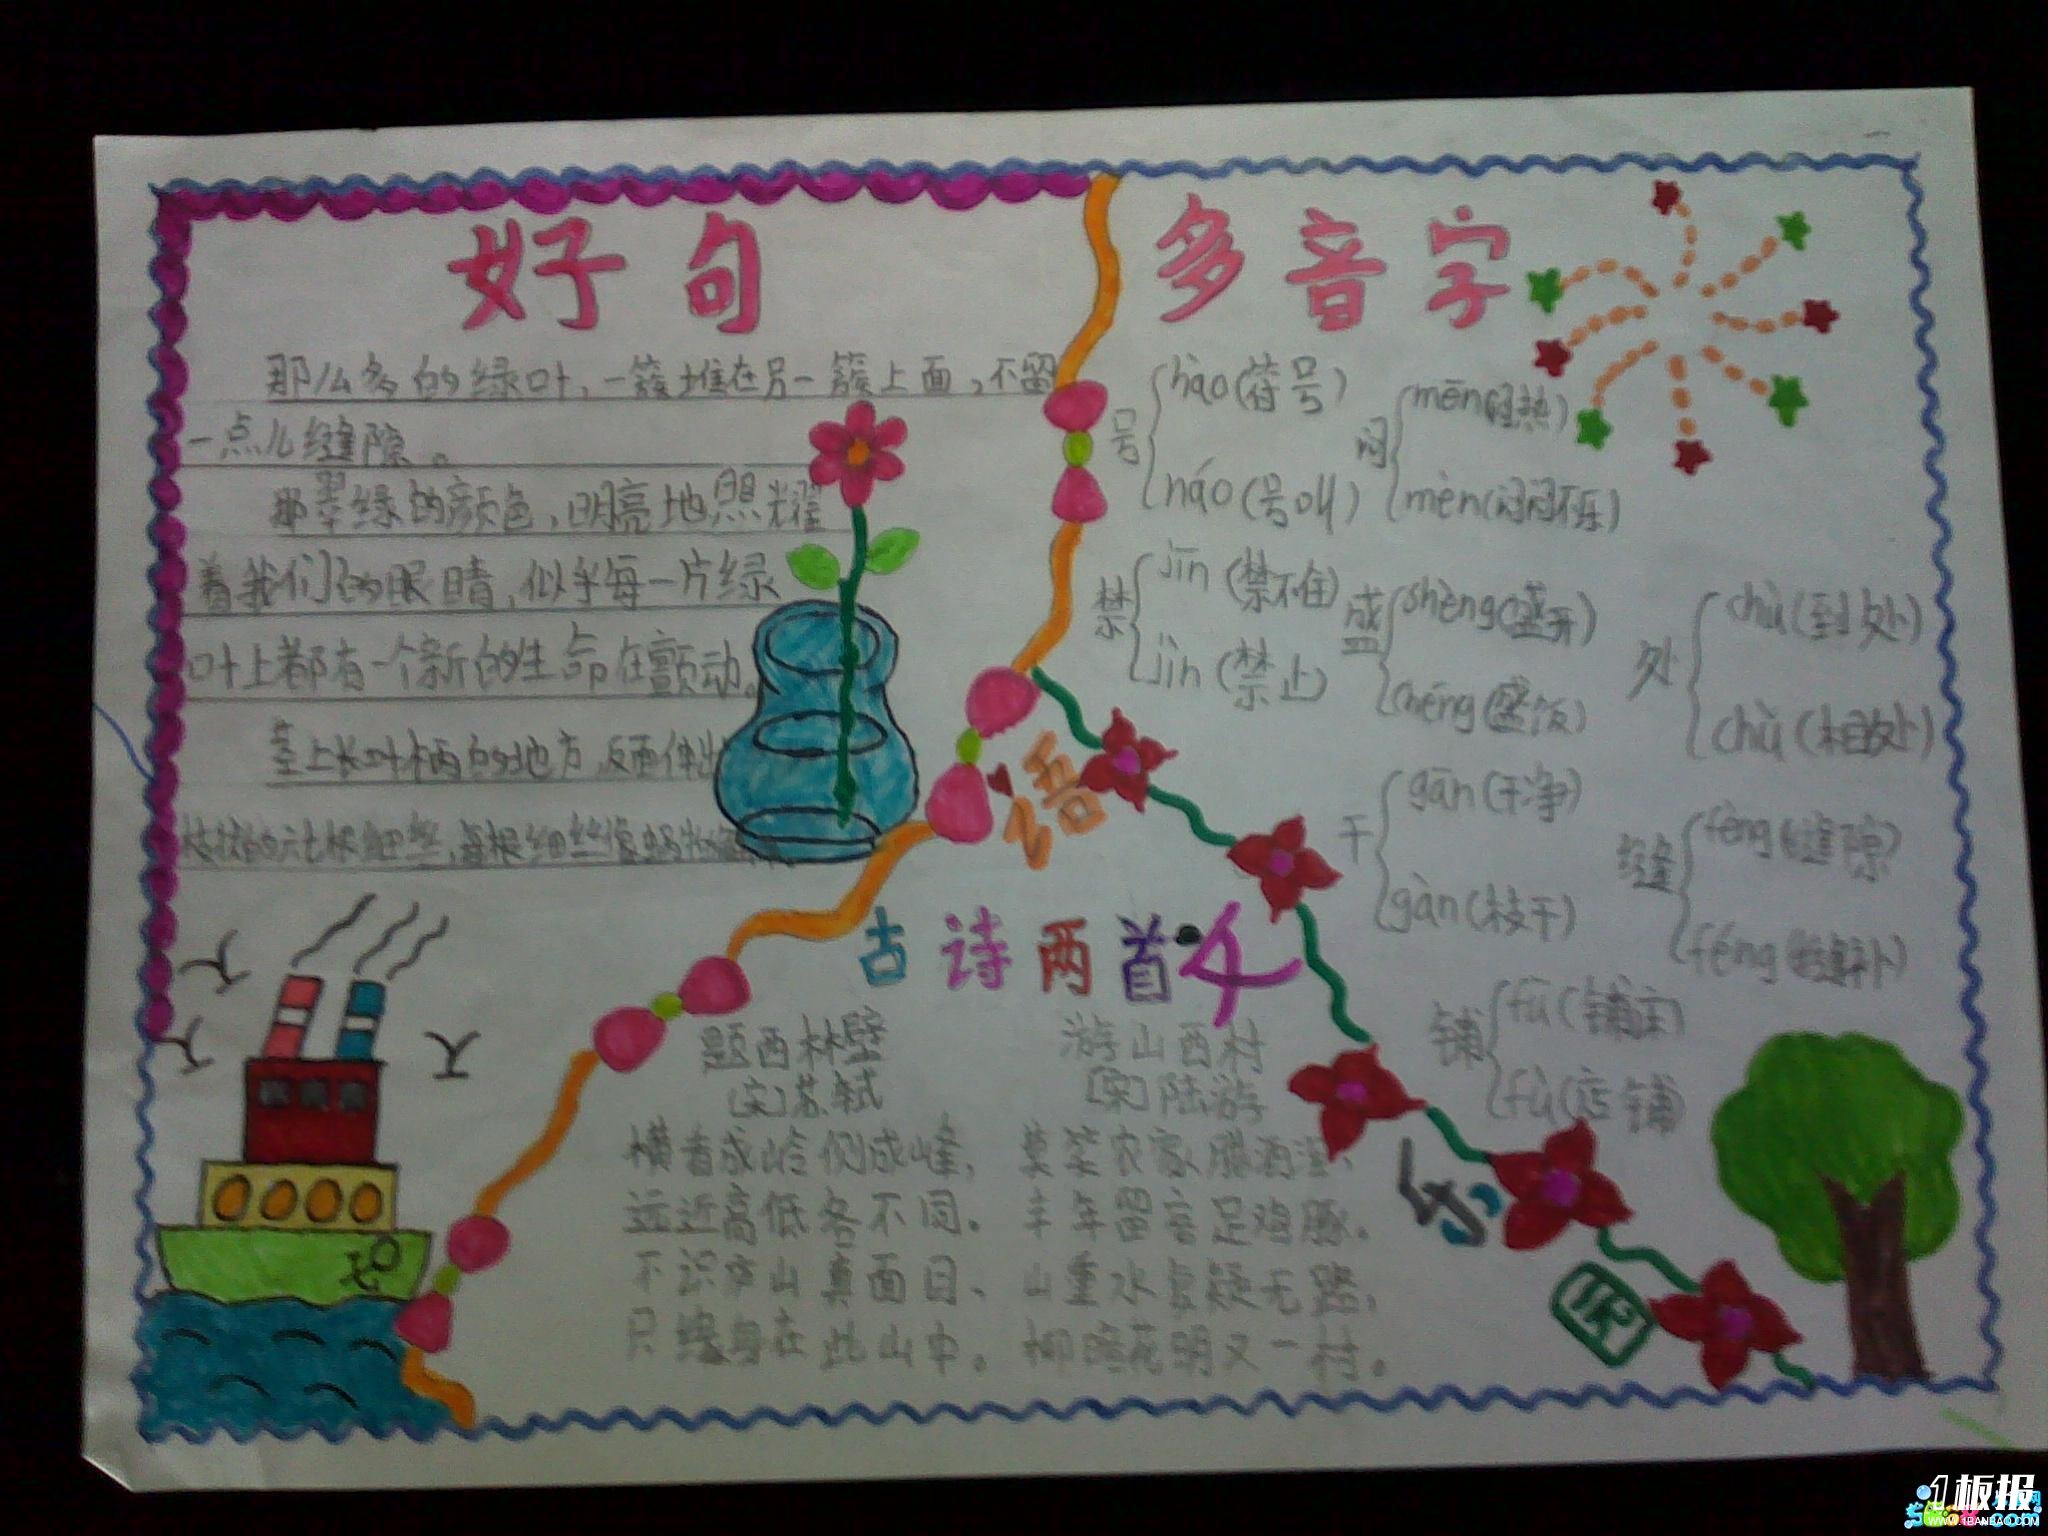 好句
那么多的绿叶，一簇堆在另一簇上面，不留
一点儿缝隙。
那翠绿的颜色，明亮地照耀
着我们的眼睛，似乎每一片绿
叶上都有一个新的生命在颤动。
茎上长叶柄的地方，反面伸出
枝状的六七根细丝，每根细丝像蜗牛
多音字
号 hào(符号)
háo(号叫)
闷 mēn(闷热)
mèn(闷闷不乐)
禁 jīn(禁不住)
jìn(禁止)
盛 shèng(盛开)
chéng(盛饭)
处 chù(到处)
chǔ(相处)
干 gān(干净)
gàn(枝干)
缝 fèng(缝隙)
féng(缝补)
铺 fū(铺主)
fù(店铺)
语
文
乐
园
古诗两首
题西林壁
〔宋〕苏轼
横看成岭侧成峰，
远近高低各不同。
不识庐山真面目、
只缘身在此山中。
游山西村
〔宋〕陆游
莫笑农家腊酒浑，
丰年留客足鸡豚。
山重水复疑无路，
柳暗花明又一村。
1板报
WWW.1BANBAO.COM